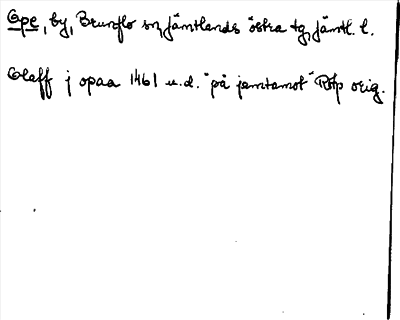 Ope, by, Brunflo sn, Jämtlands östra tg, Jämtl. l.
Olaff j opaa 1461 u.d. "på jemtamot" RAp orig.